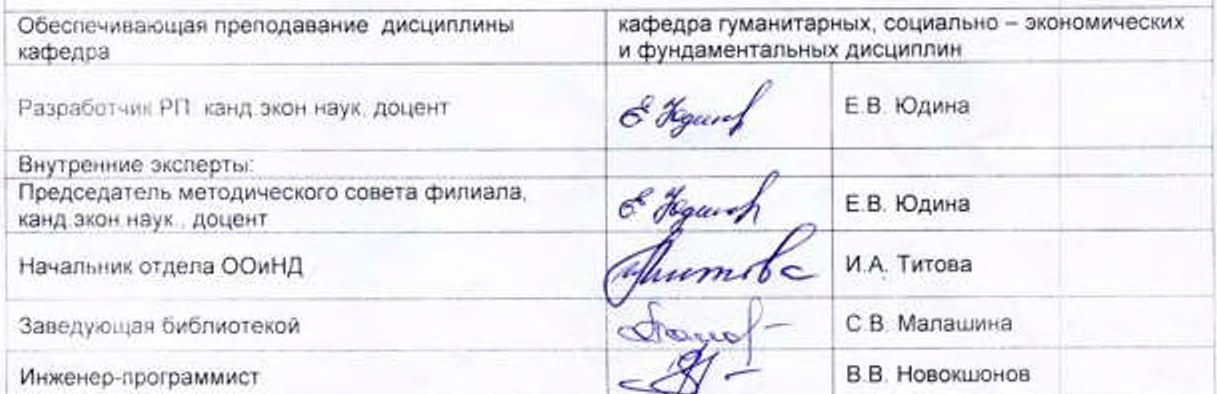 Обеспечивающая преподавание дисциплины
кафедра
кафедра гуманитарных, социально – экономических
и фундаментальных дисциплин
Разработчик РП канд.экон наук, доцент
Е Юдина
Е.В. Юдина
Внутренние эксперты:
Председатель методического совета филиала,
канд.экон.наук., доцент
Е Юдина
Е.В. Юдина
Начальник отдела ООиНД
И.А. Титова
Заведующая библиотекой
С.В. Малашина
Инженер-программист
В.В. Новокшонов